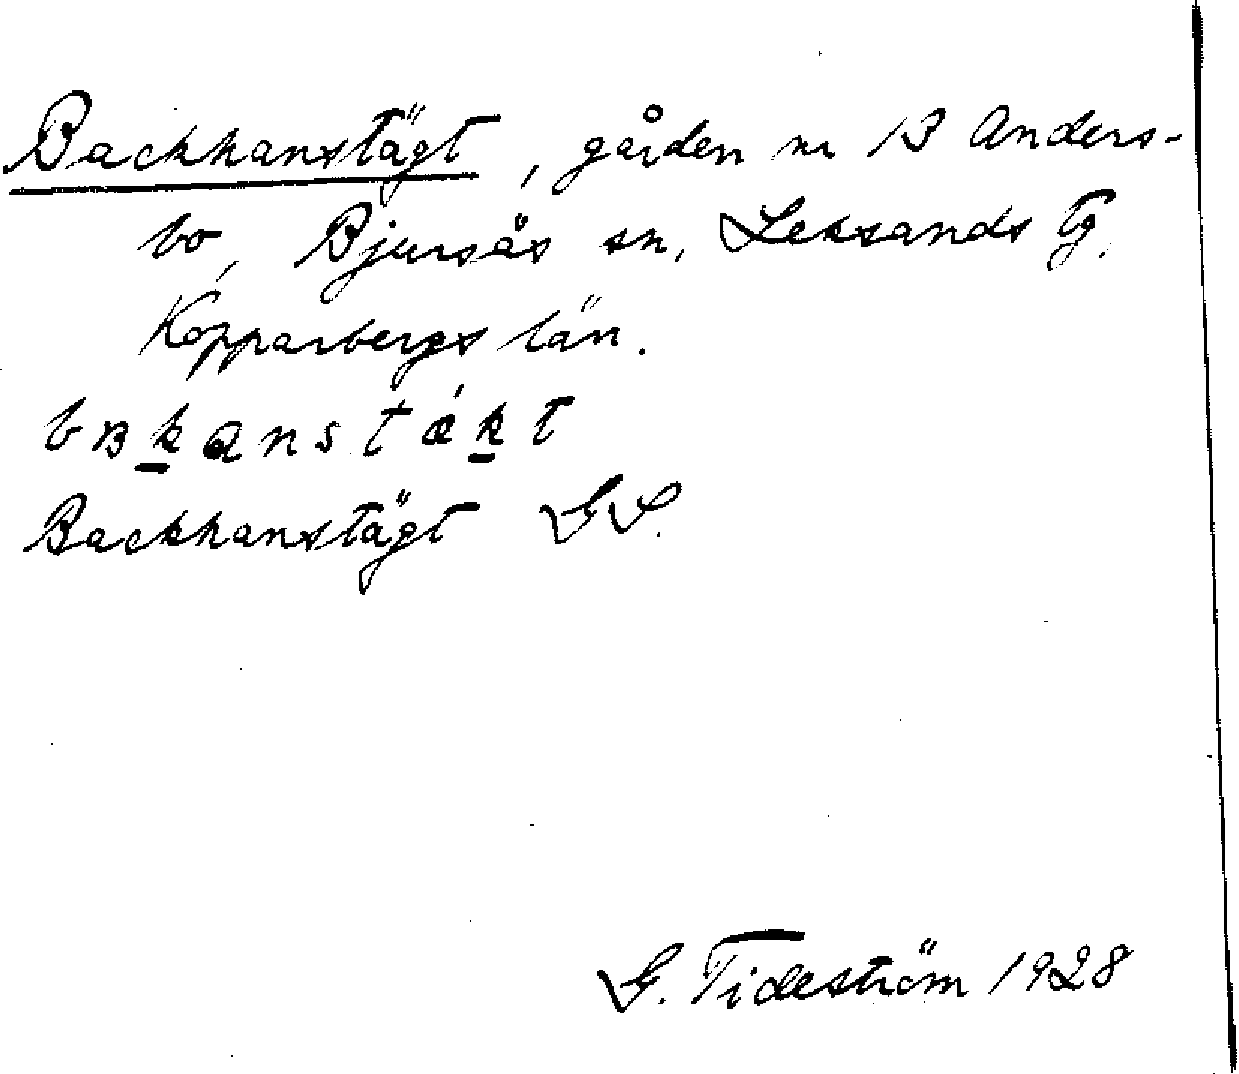 Backhanstägt, gården nr 13 Anders-
bo, Bjursås sn, Leksands Tg,
Kopparbergs län.
Backhanstägt GS.
G. Tideström 1928